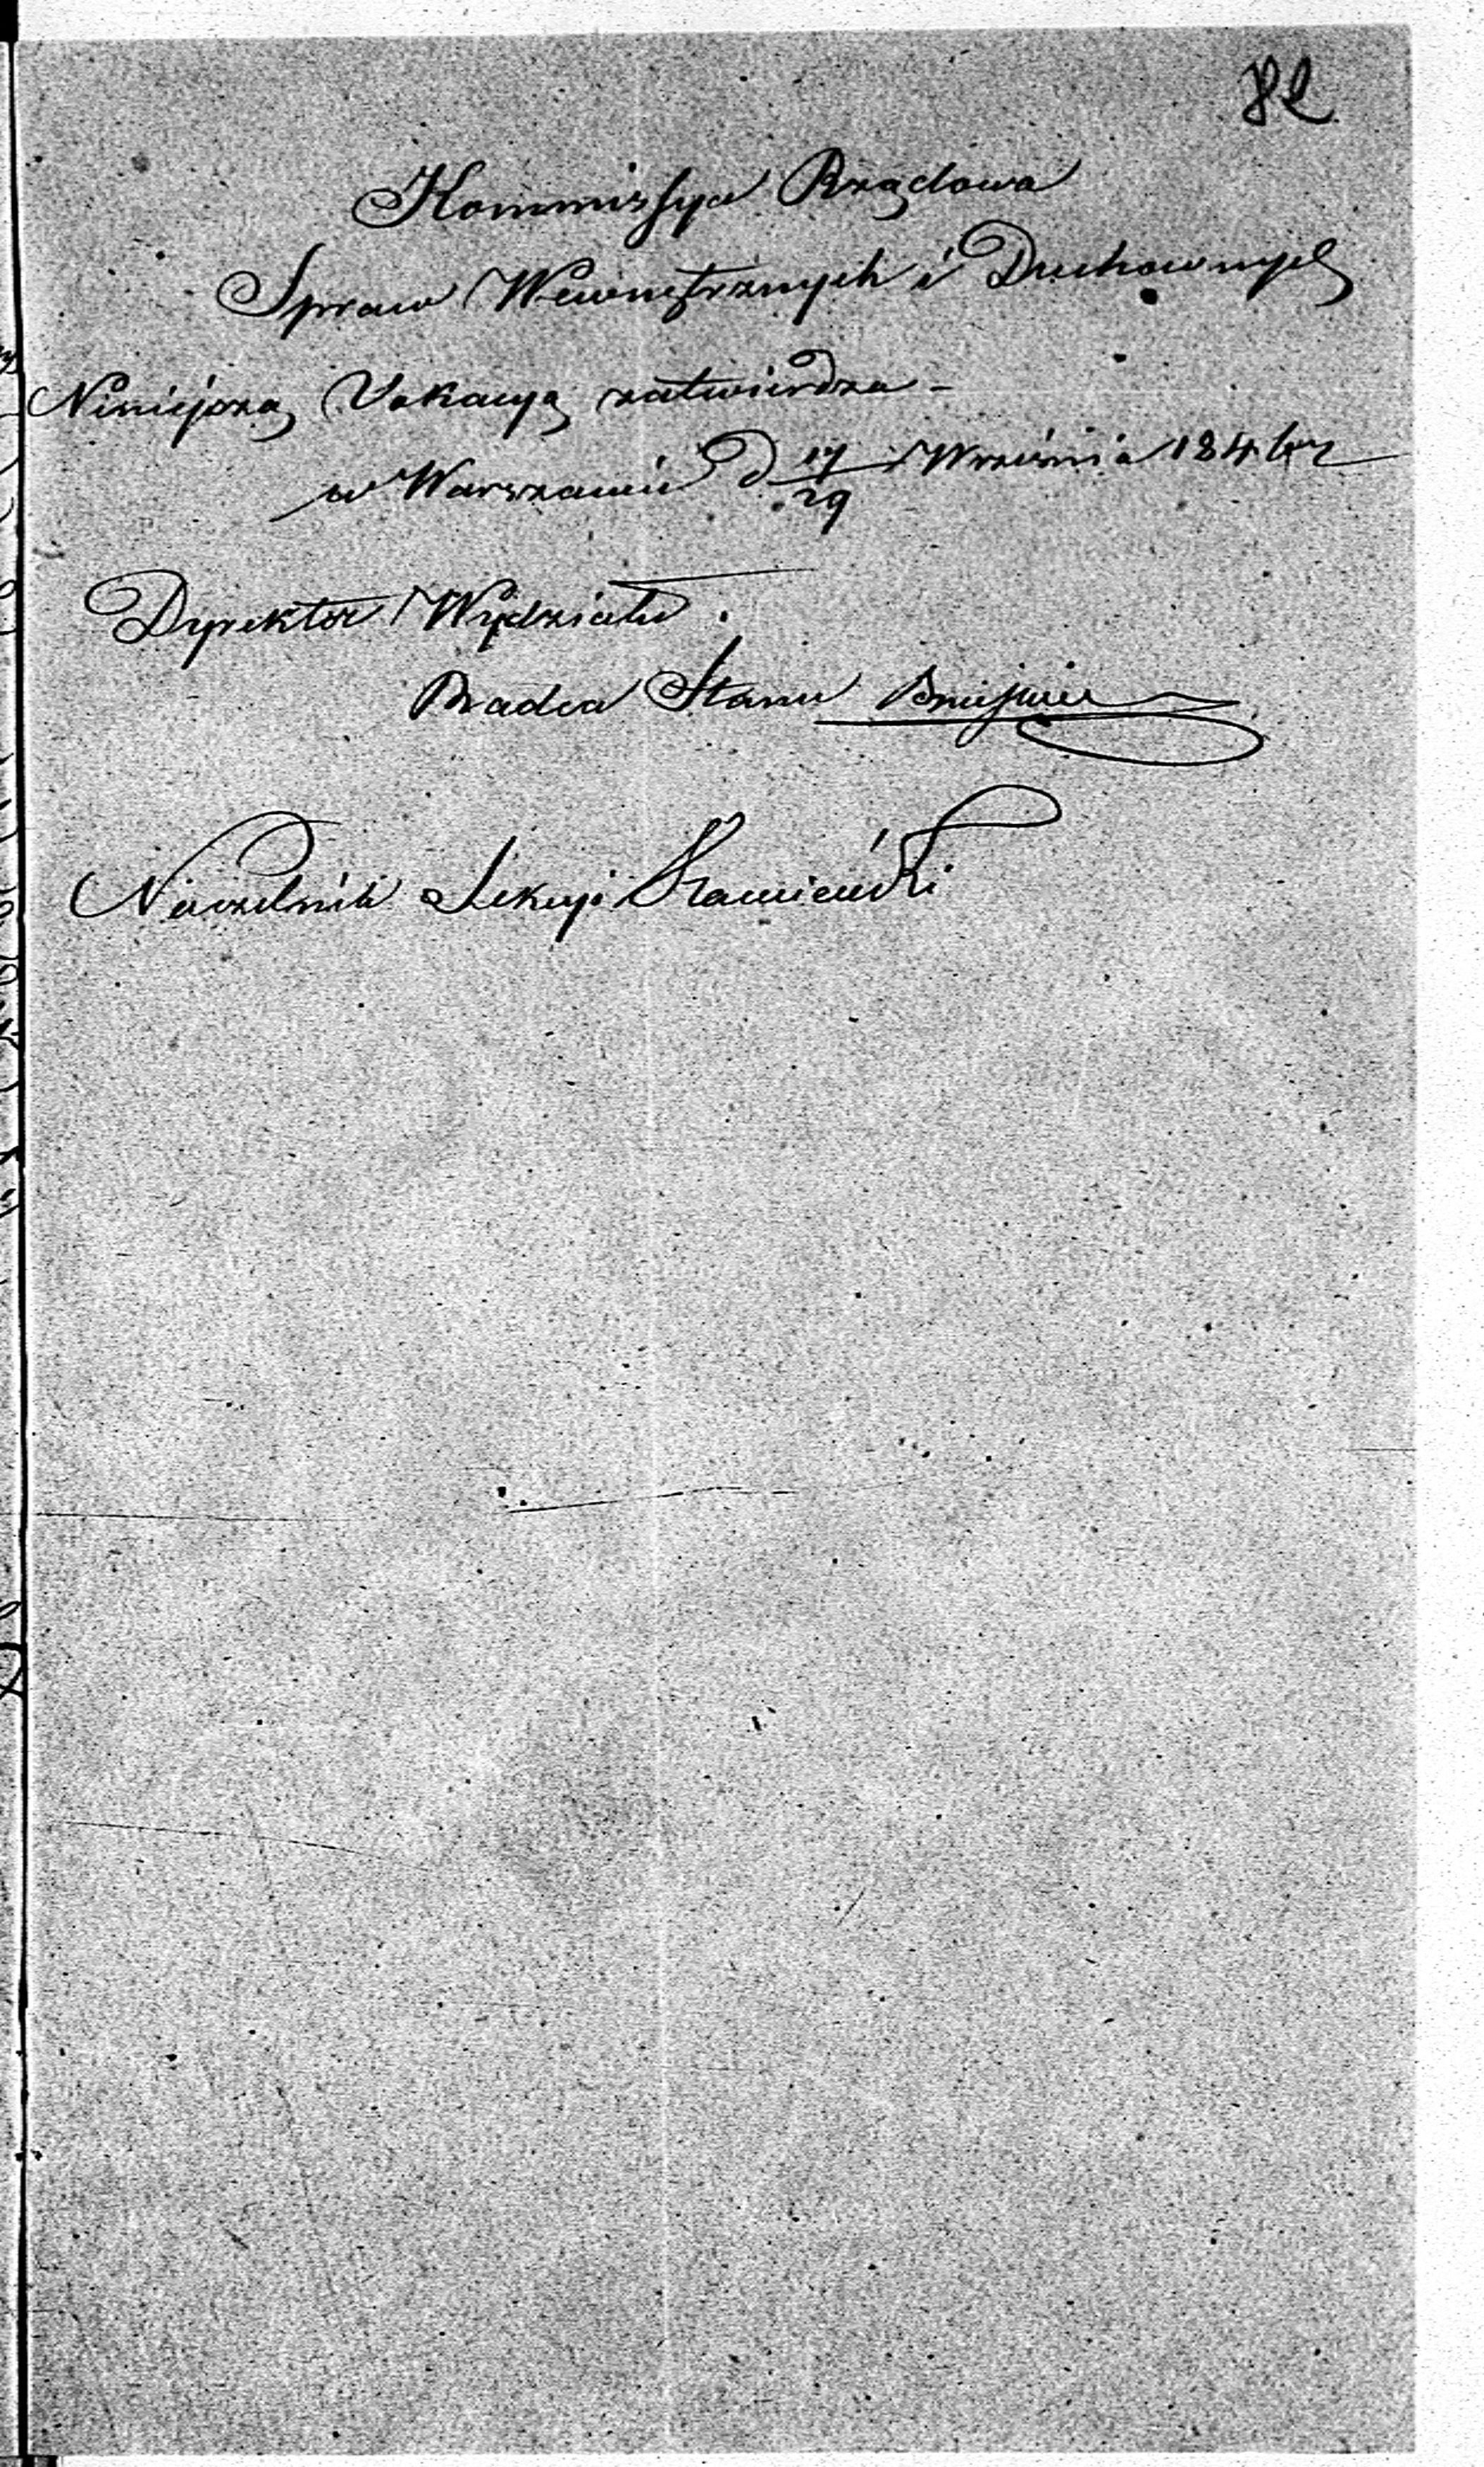 82
Kommissya Rządowa
Spraw Wewnętrznych i Duchownych
Niniejszą Vokacyą zatwierdza –
w Warszawie d 17/29 Września 1846 r
Dyrektor Wydziału
Radca Stanu
Naczelnik Sekcyi